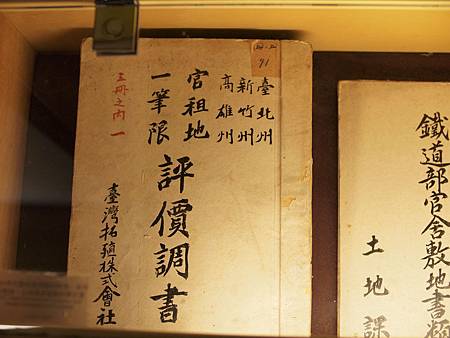 鐵道部官舍敷地書類
土地課
臺北州
新竹州
高雄州
官租地
一筆限
評價調書
臺灣拓殖株式會社
五冊之內 一
91